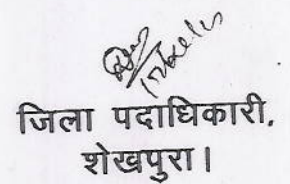 जिला पदाधिकारी,
शेखपुरा।